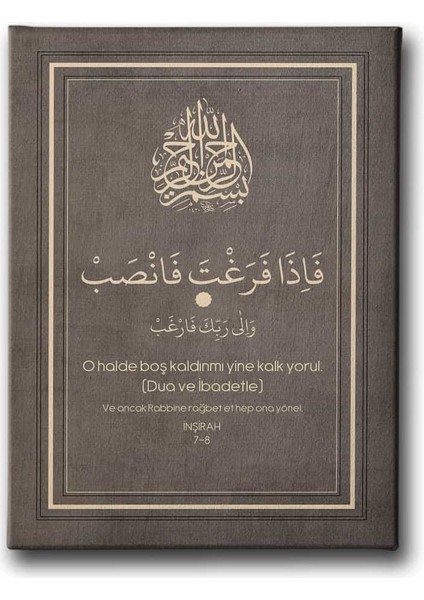 بسم الله الرحمن الرحيم
فَاِذَا فَرَغْتَ فَانْصَبْ
وَاِلٰى رَبِّكَ فَارْغَبْ
O halde boş kaldınmı yine kalk yorul.
(Dua ve İbadetle)
Ve ancak Rabbine rağbet et hep ona yönel.
İNŞİRAH
7-8